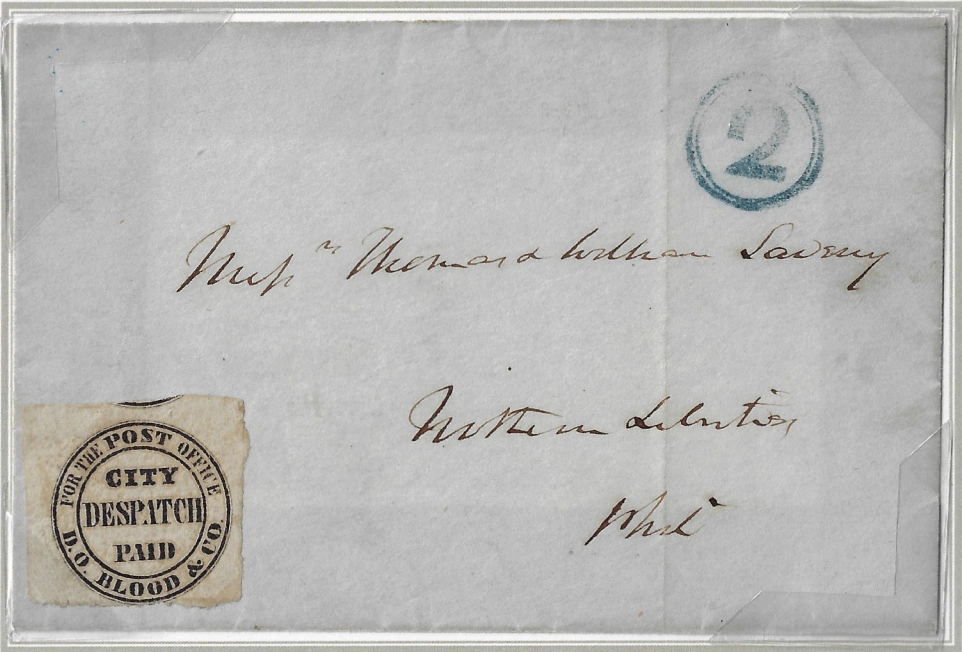 2
Mess rs Thomas & William Savery
Northern Liberties
Phila
FOR THE POST OFFICE
CITY
DESPATCH
PAID
D.O. BLOOD & CO.